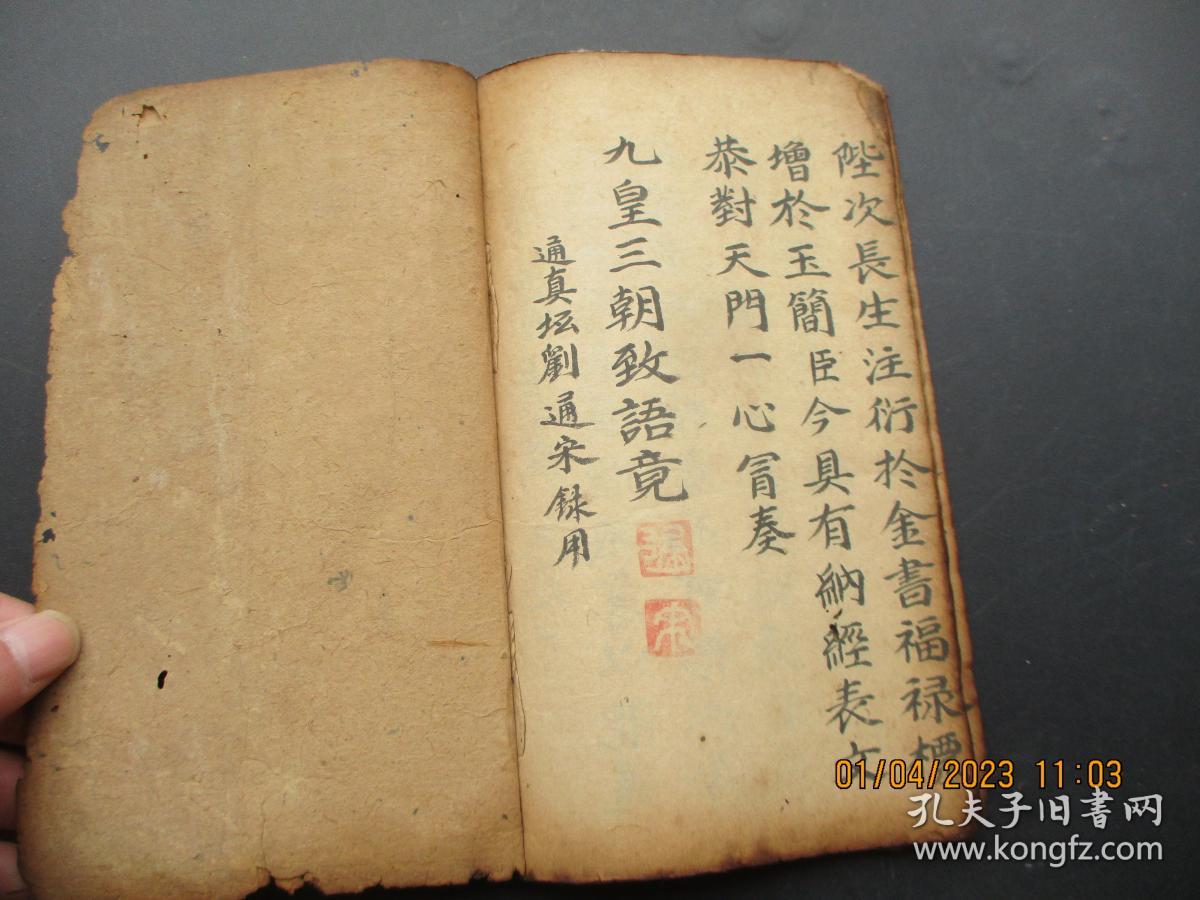 陛次長生注衍於金書福禄標
增於玉簡臣今具有納經表文
恭對天門一心冐奏
九皇三朝致語竟
通真坛劉通宋録用
01/04/2023 11:03
孔夫子旧书网
www.kongfz.com